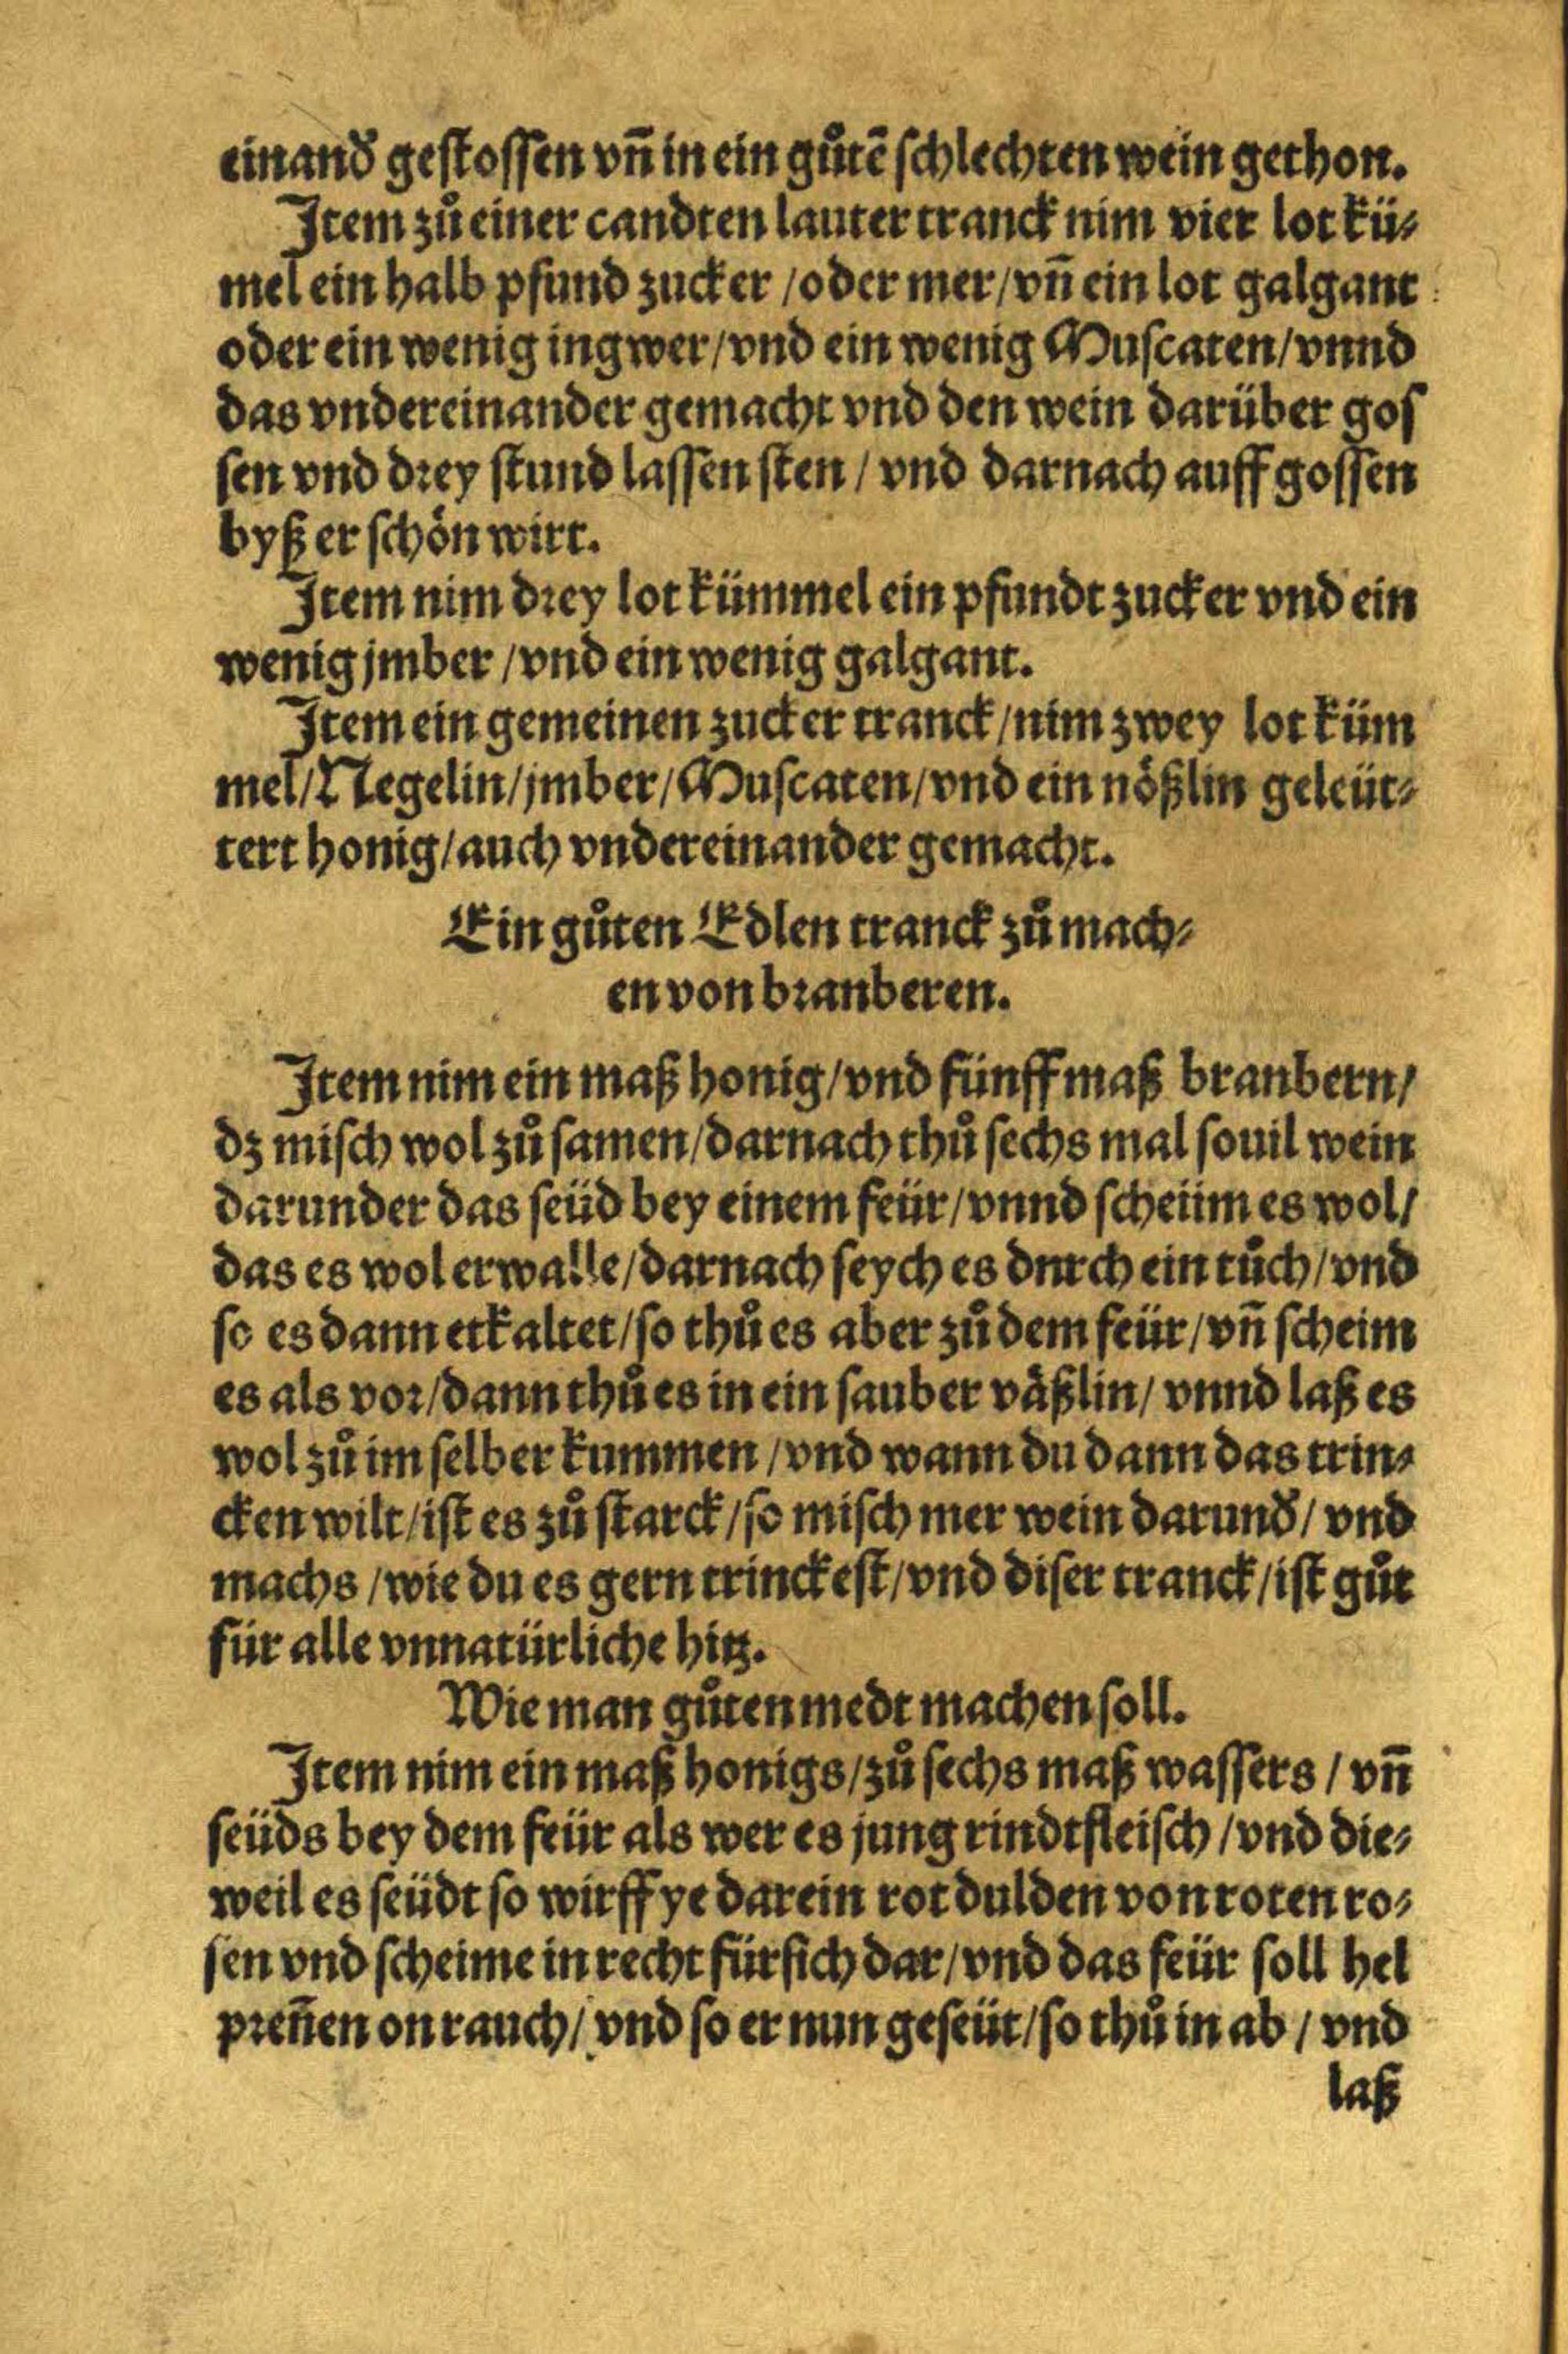 einandð gestossen vñ in ein gůtẽ schlechten wein gethon.
Item zů einer candten lauter tranck nim vier lot kü-
mel ein halb pfund zucker / oder mer / vñ ein lot galgant
oder ein wenig ingwer / vnd ein wenig Muscaten / vnnd
das vndereinander gemacht vnd den wein darüber gos
sen vnd drey stund lassen sten / vnd darnach auff gossen
byß er schön wirt.
Item nim drey lot kümmel ein pfundt zucker vnd ein
wenig jmber / vnd ein wenig galgant.
Item ein gemeinen zucker tranck / nim zwey lot küm
mel / Negelin / jmber / Muscaten / vnd ein nößlin geleüt-
tert honig / auch vndereinander gemacht.
Ein gůten Edlen tranck zů mach-
en von branberen.
Item nim ein maß honig / vnd fünff maß branbern /
dz misch wol zů samen / darnach thů sechs mal souil wein
darunder das seüd bey einem feür / vnnd scheüm es wol /
das es wol erwalle / darnach seych es dnrch ein tůch / vnd
so es dann etkaltet / so thů es aber zů dem feür / vñ scheim
es als vor / dann thů es in ein sauber väßlin / vnnd laß es
wol zů im selber kummen / vnd wann du dann das trin-
cken wilt / ist es zů starck / so misch mer wein darundð / vnd
machs / wie du es gern trinckest / vnd diser tranck / ist gůt
für alle vnnatürliche hitz.
Wie man gůten medt machen soll.
Item nim ein maß honigs / zů sechs maß wassers / vñ
seüds bey dem feür als wer es jung rindtfleisch / vnd die-
weil es seüdt so wirff ye darein rot dulden von roten ro-
sen vnd scheime in recht fürsich dar / vnd das feür soll hel
preñen on rauch / vnd so er nun geseüt / so thů in ab / vnd
laß